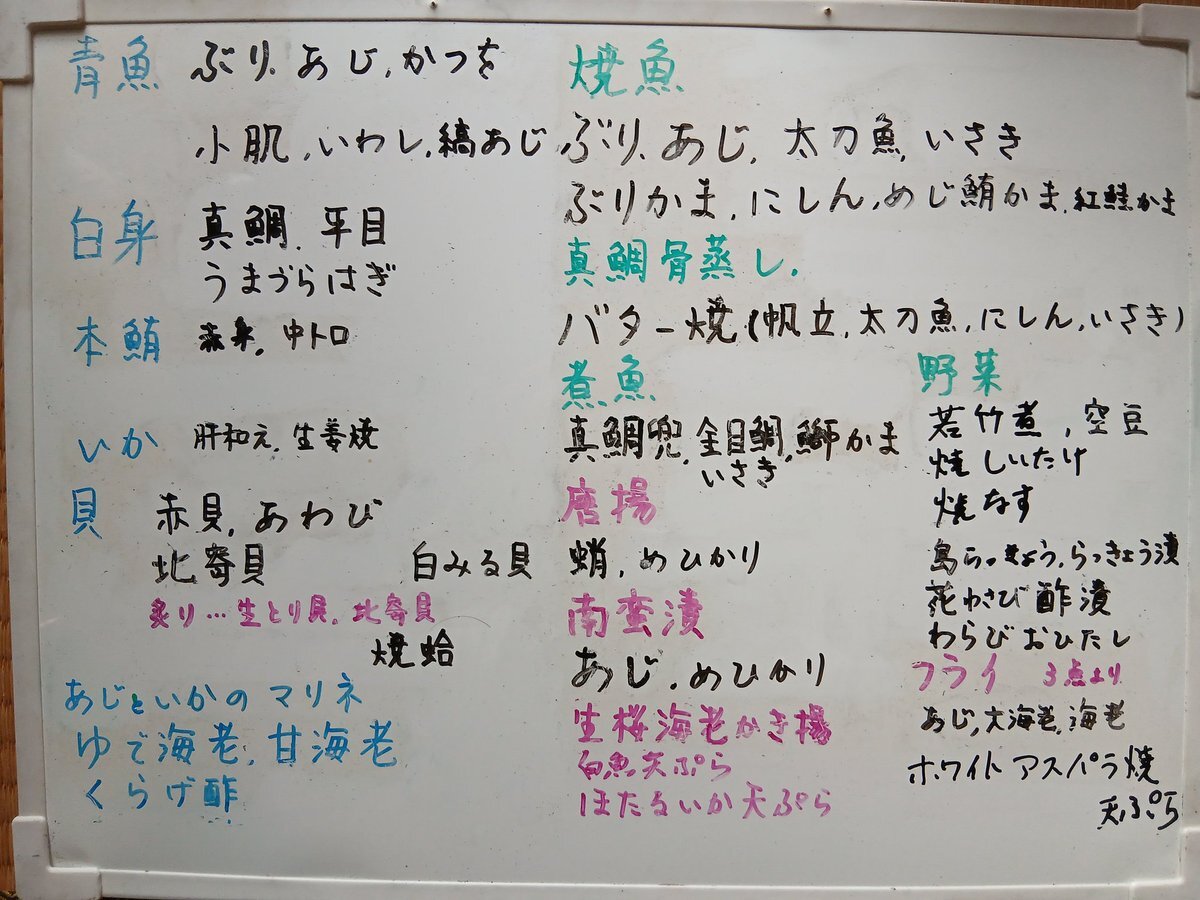 青魚 ぶり、あじ、かつを
小肌、いわし、縞あじ
白身 真鯛、平目
うまづらはぎ
本鮪 赤身、中トロ
いか 肝和え、生姜焼
貝 赤貝、あわび
北寄貝 白みる貝
炙り…生とり貝、北寄貝
焼蛤
あじといかのマリネ
ゆで海老、甘海老
くらげ酢
焼魚
ぶり、あじ、太刀魚、いさき
ぶりかま、にしん、めじ鮪かま、紅鮭かま
真鯛骨蒸し、
バター焼(帆立、太刀魚、にしん、いさき)
煮魚
真鯛兜、金目鯛、鰤かま
いさき
唐揚
蛸、めひかり
南蛮漬
あじ、めひかり
生桜海老かき揚
白魚天ぷら
ほたるいか天ぷら
野菜
若竹煮、空豆
焼しいたけ
焼なす
島らっきょう、らっきょう漬
花わさび酢漬
わらびおひたし
フライ 3点より
あじ、大海老、海老
ホワイトアスパラ焼
天ぷら